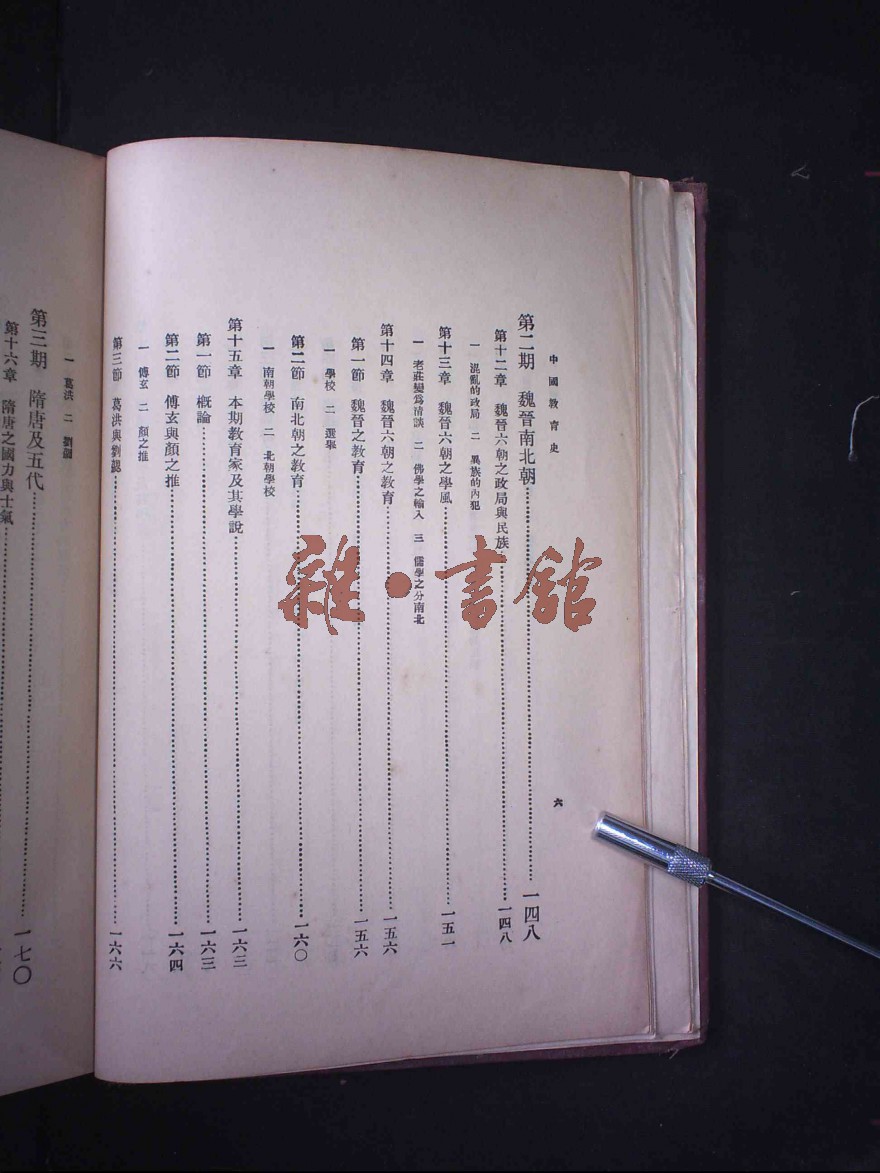 中國教育史
六
第二期 魏晉南北朝……一四八
第十二章 魏晉六朝之政局與民族……一四八
一 混亂的政局 二 異族的內犯
第十三章 魏晉六朝之學風……一五一
一 老莊變爲清談 二 佛學之輸入 三 儒學之分南北
第十四章 魏晉六朝之教育……一五六
第一節 魏晉之教育……一五六
一 學校 二 選舉
第二節 南北朝之教育……一六〇
一 南朝學校 二 北朝學校
第十五章 本期教育家及其學說……一六三
第一節 概論……一六三
第二節 傅玄與顏之推……一六四
一 傅玄 二 顏之推
第三節 葛洪與劉勰……一六六
一 葛洪 二 劉勰
第三期 隋唐及五代……一七〇
第十六章 隋唐之國力與士氣……
雜·書館